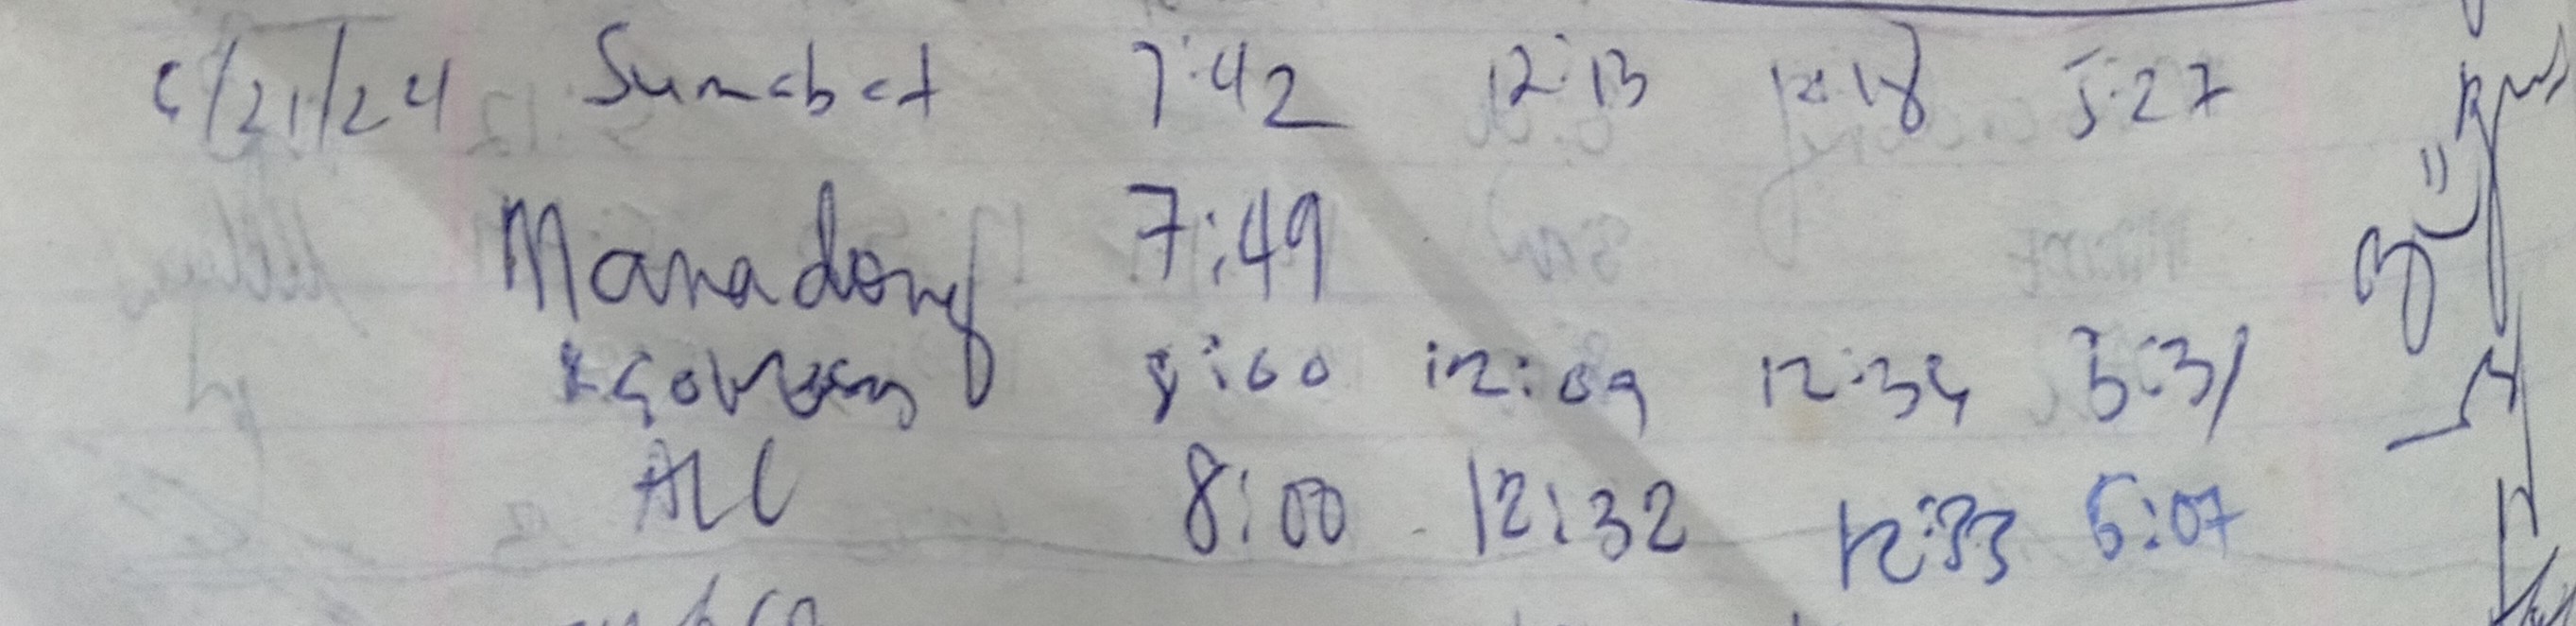 6/21/24 Sumabat 7:42 12:13 12:18 5:27
Manadong 7:49
8:00 12:09 12:34 5:31
ALL 8:00 12:32 12:33 5:07